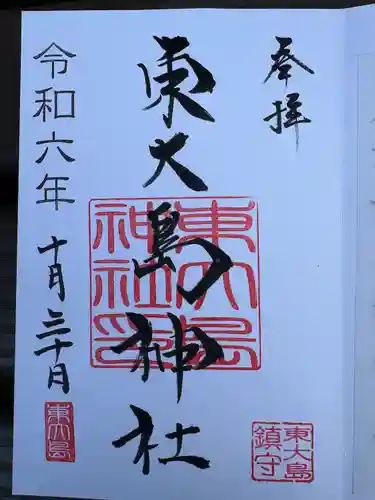 奉拝
東大島神社
令和六年十月三十日
東大島
神社印
東大島
鎮守
東大島